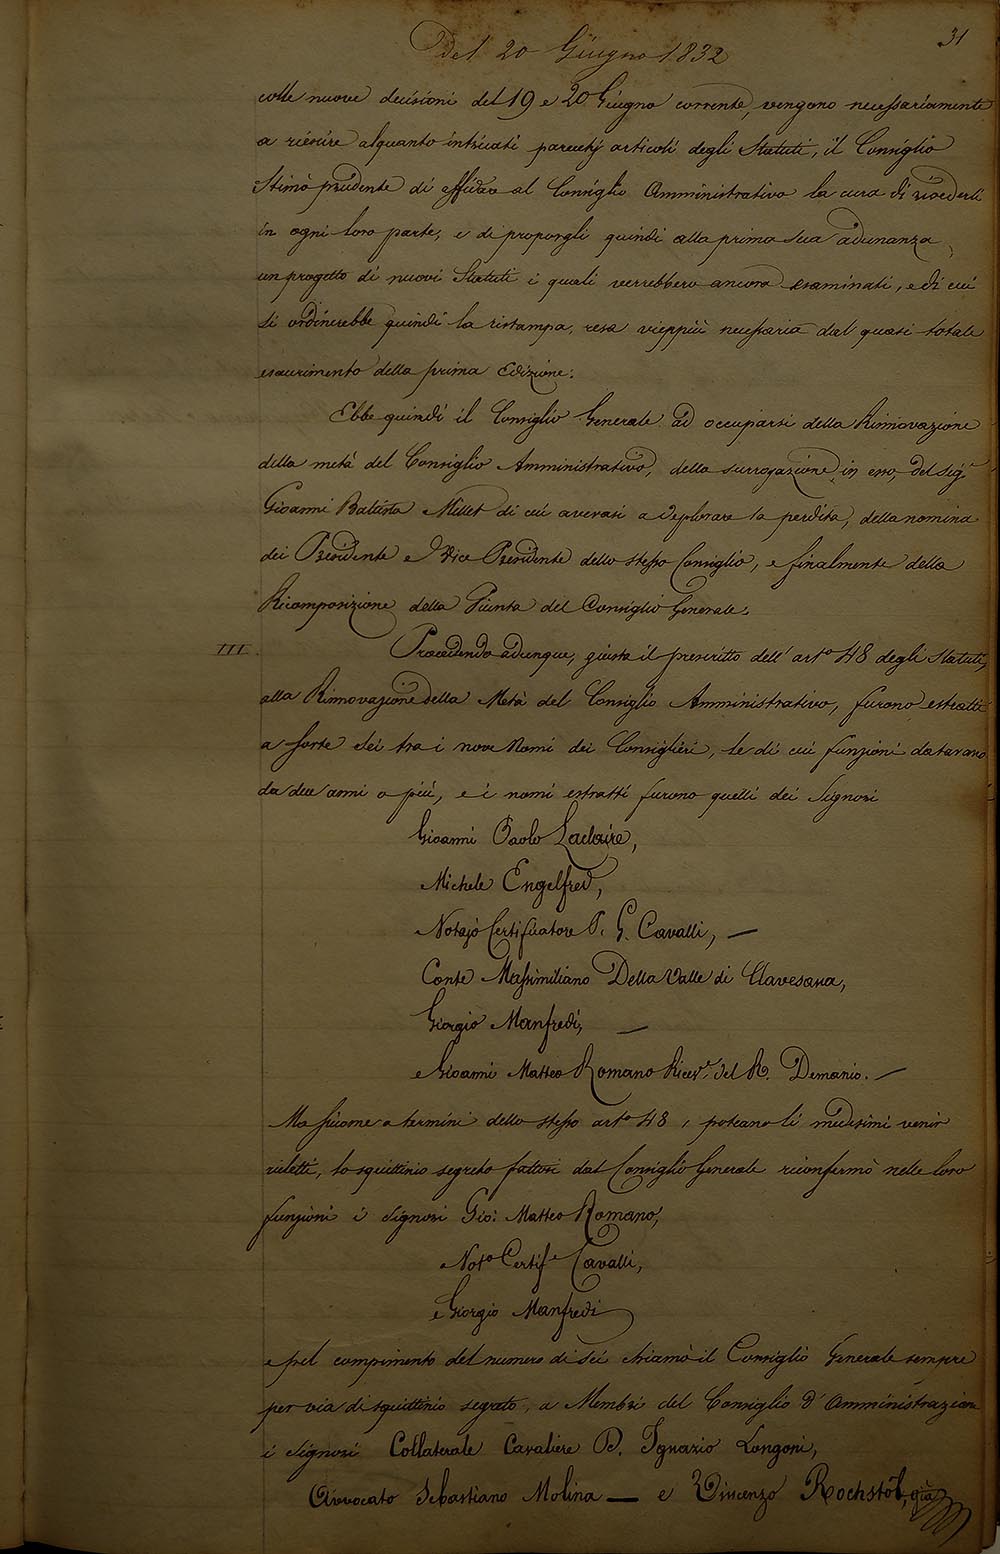 31
Del 20 Giugno 1832
colle nuove decisioni del 19 e 20 Giugno corrente, vengono necessariamente
a riescire alquanto intricati parecchj articoli degli Statuti, il Consiglio
Stimò prudente di affidare al Consiglio Amministrativo la cura di rivederli
in ogni loro parte, e di proporgli quindi alla prima sua adunanza
un progetto di nuovi Statuti i quali verrebbero ancora esaminati, e di cui
si ordinerebbe quindi la ristampa, resa vieppiù necessaria dal quasi totale
esaurimento della prima Edizione.
Ebbe quindi il Consiglio Generale ad occuparsi della Rinnovazione
della metà del Consiglio Amministrativo, della surrogazione in esso, del Sigr
Gioanni Battista Millet di cui aveasi a deplorare la perdita, della nomina
dei Presidente e Vice Presidente dello stesso Consiglio, e finalmente della
Ricomposizione della Giunta del Consiglio Generale.
III. Procedendo adunque, giusta il prescritto dell' arto 48 degli Statuti,
alla Rinnovazione della Metà del Consiglio Amministrativo, furono estratti
a sorte sei tra i nove Nomi dei Consiglieri, le di cui funzioni datavano
da due anni o più, e i nomi estratti furono quelli dei Signori
Gioanni Paolo Laclaire,
Michele Engelfred,
Notajo Certificatore P. G. Cavalli, —
Conte Massimiliano Della Valle di Clavesana,
Giorgio Manfredi, —
e Gioanni Matteo Romano Ricevre del R. Demanio. —
Ma siccome a termini dello stesso arto 48, poteano li medesimi venir
rieletti, lo squittinio segreto fattosi dal Consiglio Generale riconfermò nelle loro
funzioni i Signori Gio: Matteo Romano,
Noto Certife Cavalli,
e Giorgio Manfredi
e pel compimento del numero di sei chiamò il Consiglio Generale sempre
per via di squittinio segreto, a Membri del Consiglio d'Amministrazione
i Signori Collaterale Cavaliere D. Ignazio Longoni,
Avvocato Sebastiano Molina — e Vincenzo Rochstöl, già